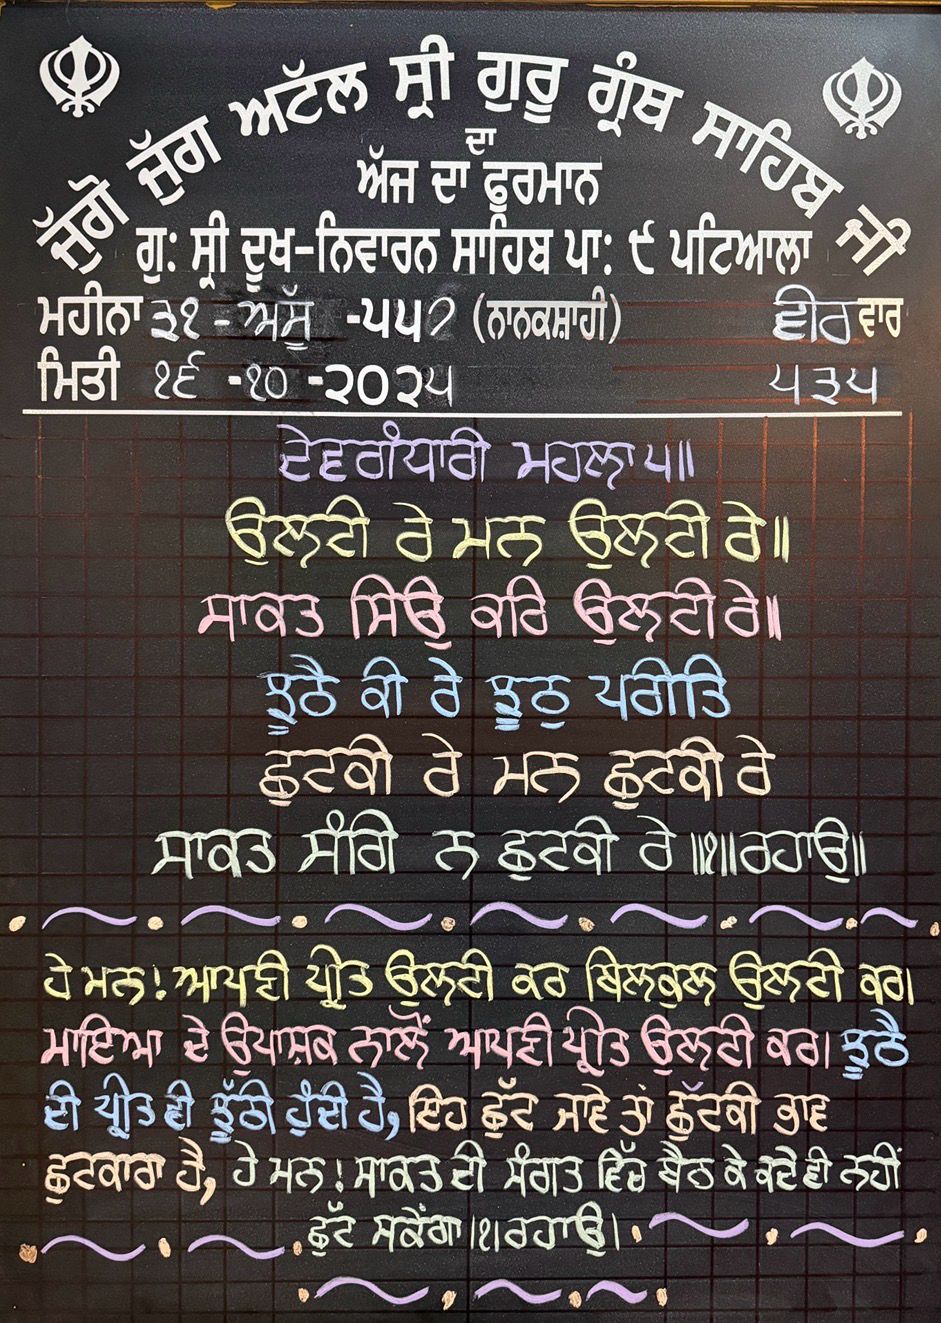 ਜੁੱਗੋ ਜੁੱਗ ਅਟੱਲ ਸ੍ਰੀ ਗੁਰੂ ਗ੍ਰੰਥ ਸਾਹਿਬ ਜੀ
ਦਾ
ਅੱਜ ਦਾ ਫੁਰਮਾਨ
ਗੁ: ਸ੍ਰੀ ਦੂਖ-ਨਿਵਾਰਨ ਸਾਹਿਬ ਪਾ: ੯ ਪਟਿਆਲਾ
ਮਹੀਨਾ ੩੧ - ਅਸੂੰ -੫੫੭ (ਨਾਨਕਸ਼ਾਹੀ) ਵੀਰ ਵਾਰ
ਮਿਤੀ ੧੬ -੧੦ -੨੦੨੫ ੫੩੫
ਦੇਵਗੰਧਾਰੀ ਮਹਲਾ ੫॥
ਉਲਟੀ ਰੇ ਮਨ ਉਲਟੀ ਰੇ॥
ਸਾਕਤ ਸਿਉ ਕਰਿ ਉਲਟੀ ਰੇ॥
ਝੂਠੈ ਕੀ ਰੇ ਝੂਠੁ ਪਰੀਤਿ
ਛੁਟਕੀ ਰੇ ਮਨ ਛੁਟਕੀ ਰੇ
ਸਾਕਤ ਸੰਗਿ ਨ ਛੁਟਕੀ ਰੇ ॥੧॥ਰਹਾਉ॥
ਹੇ ਮਨ! ਆਪਣੀ ਪ੍ਰੀਤ ਉਲਟੀ ਕਰ ਬਿਲਕੁਲ ਉਲਟੀ ਕਰ।
ਮਾਇਆ ਦੇ ਉਪਾਸ਼ਕ ਨਾਲੋਂ ਆਪਣੀ ਪ੍ਰੀਤ ਉਲਟੀ ਕਰ। ਝੂਠੈ
ਦੀ ਪ੍ਰੀਤ ਵੀ ਝੂੱਠੀ ਹੁੰਦੀ ਹੈ, ਇਹ ਛੁੱਟ ਜਾਵੇ ਤਾਂ ਛੁੱਟਕੀ ਭਾਵ
ਛੁਟਕਾਰਾ ਹੈ, ਹੇ ਮਨ! ਸਾਕਤ ਦੀ ਸੰਗਤ ਵਿੱਚ ਬੈਠ ਕੇ ਕਦੇ ਵੀ ਨਹੀਂ
ਛੁੱਟ ਸਕੇਂਗਾ।੧।ਰਹਾਉ।